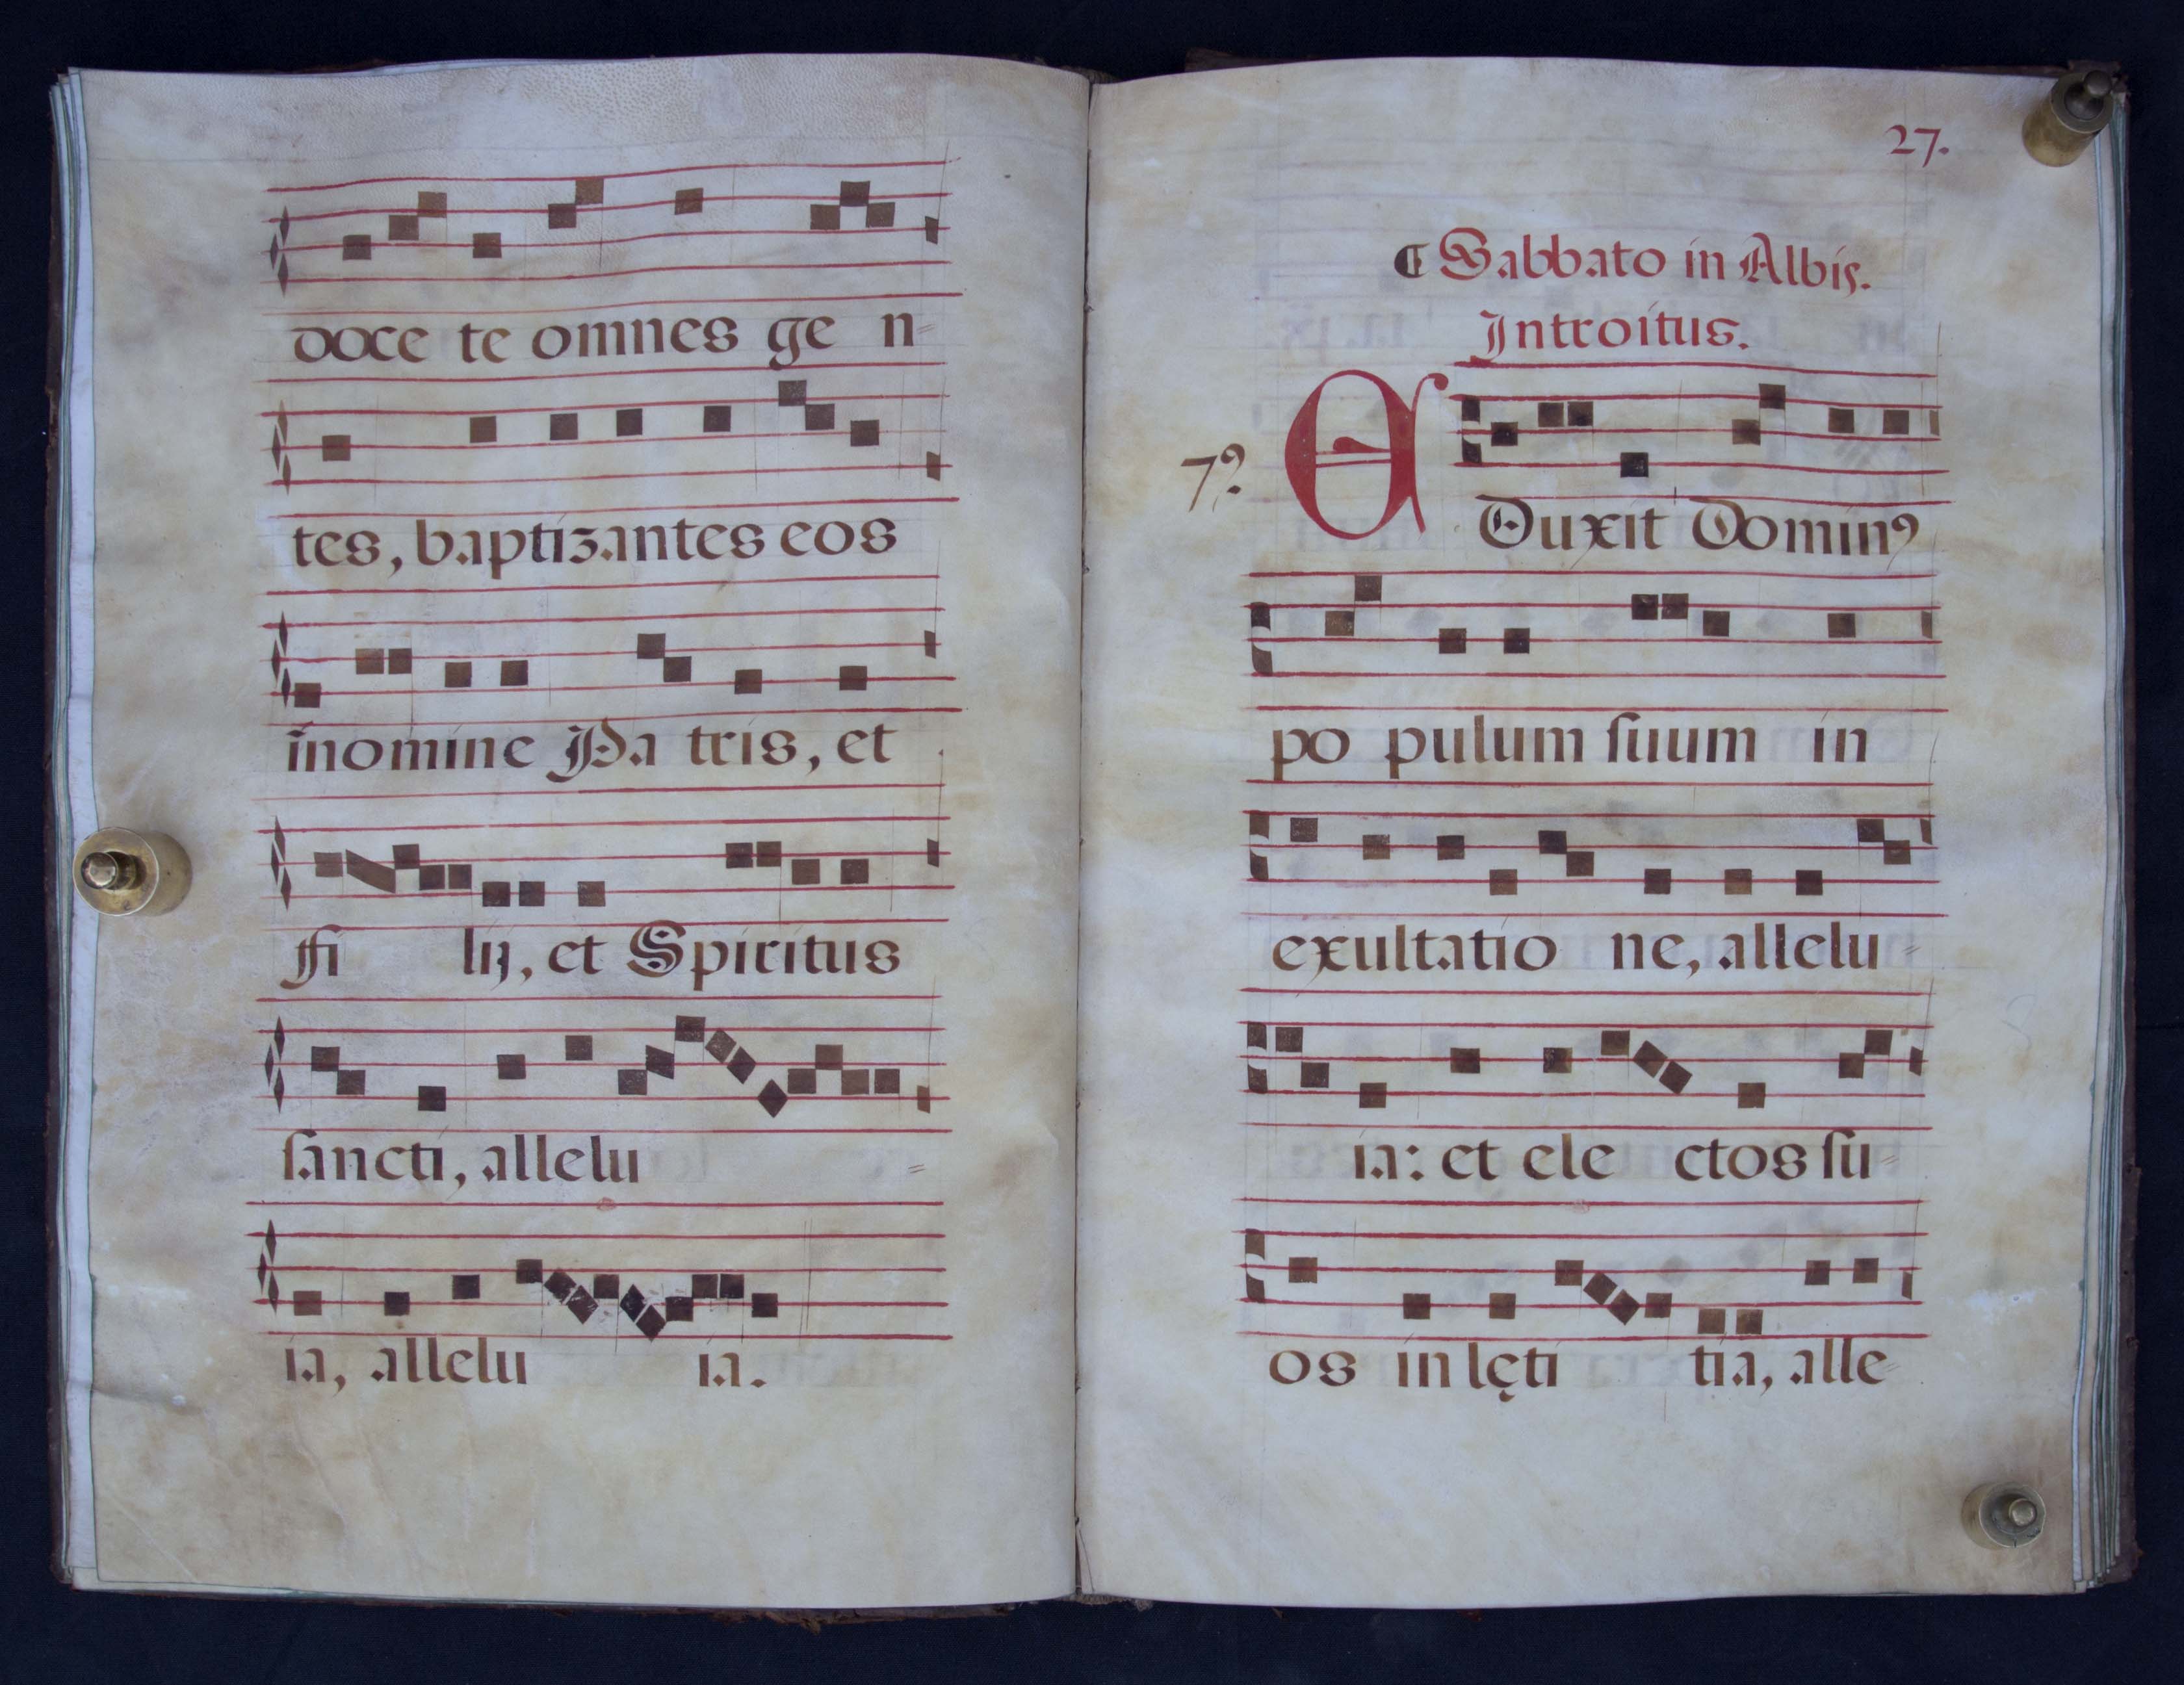 doce te omnes ge n=
tes, baptizantes eos
in nomine Pa tris, et
fi lij, et Spiritus
ſancti, allelu =
ia, allelu ia.
27.
¶ Sabbato in Albis.
Introitus.
7º. E Duxit Dominꝰ
po pulum ſuum in
exultatio ne, allelu=
ia: et ele ctos ſu=
os in lęti tia, alle=